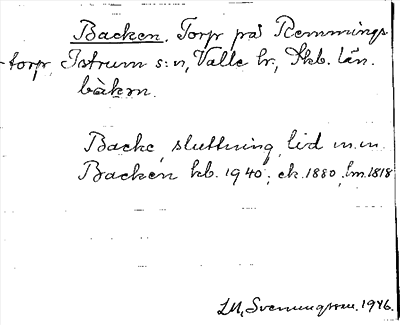 Backen. Torp på Remmings-
torp, Istrum s:n, Valle hr., Skb. län.
bàkɐn.
Backe, sluttning, lid m.m.
Backen kb. 1940; ek. 1880; lm. 1818
L.M. Svenungsson. 1946.